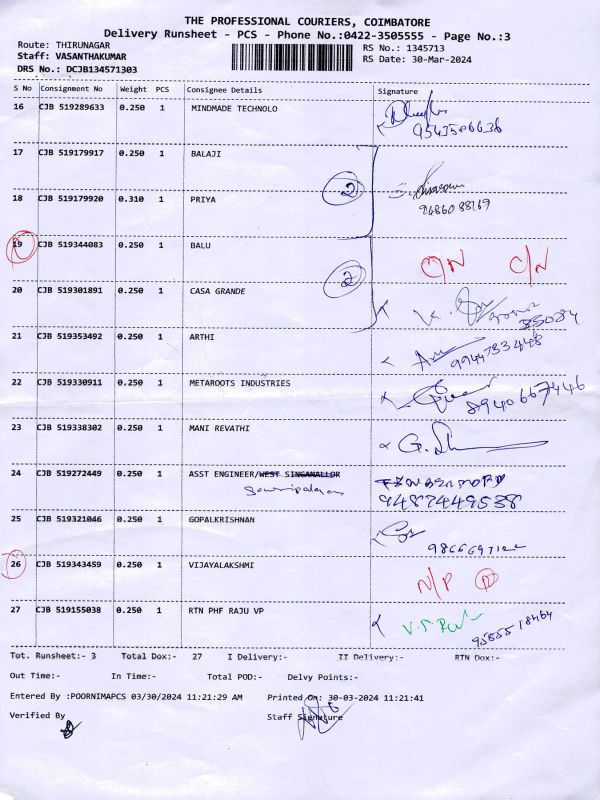 THE PROFESSIONAL COURIERS, COIMBATORE
Delivery Runsheet - PCS - Phone No.:0422-3505555 - Page No.:3
Route: THIRUNAGAR
RS No.: 1345713
Staff: VASANTHAKUMAR
RS Date: 30-Mar-2024
DRS No.: DCJB134571303
S No Consignment No Weight PCS Consignee Details Signature
16 CJB 519289633 0.250 1 MINDMADE TECHNOLO
17 CJB 519179917 0.250 1 BALAJI
2
18 CJB 519179920 0.310 1 PRIYA
9686088169
19 CJB 519344083 0.250 1 BALU
C/N C/N
2
20 CJB 519301891 0.250 1 CASA GRANDE
35084
21 CJB 519353492 0.250 1 ARTHI
9944733448
22 CJB 519330911 0.250 1 METAROOTS INDUSTRIES
8940667446
23 CJB 519338302 0.250 1 MANI REVATHI
24 CJB 519272449 0.250 1 ASST ENGINEER/WEST SINGANALLOR
9487449538
25 CJB 519321046 0.250 1 GOPALKRISHNAN
26 CJB 519343459 0.250 1 VIJAYALAKSHMI
N/P
27 CJB 519155038 0.250 1 RTN PHF RAJU VP
Tot. Runsheet:- 3 Total Dox:- 27 I Delivery:- II Delivery:- RTN Dox:-
Out Time:- In Time:- Total POD:- Delvy Points:-
Entered By :POORNIMAPCS 03/30/2024 11:21:29 AM Printed On: 30-03-2024 11:21:41
Verified By Staff Signature